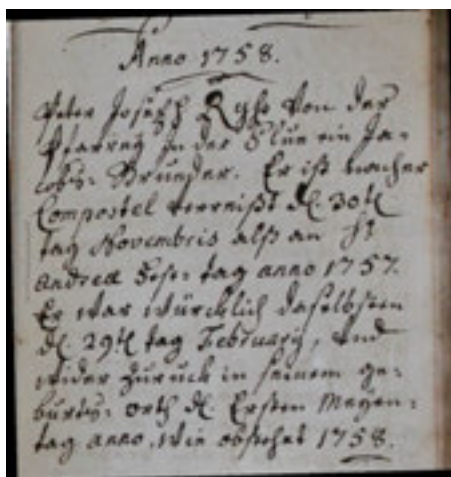 Anno 1758.
Peter Joseph von der
Pfarrey in der Flüe ein Ja-
cobs: Bruoder. Er ist nacher
Compostel verreißt dē 30tē
tag Novembris alß an St
Andrea fest tag anno 1757.
Er war würcklich daselbsten
dē 29tē tag February, und
wider zuruck in seinem ge-
burts: orth dē Ersten Meyen-
tag anno, wie obstehet 1758.